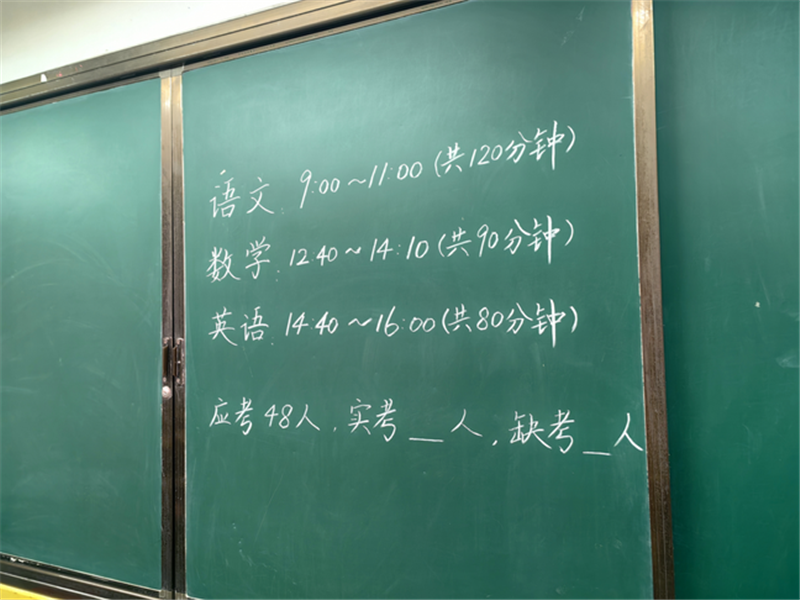 语文: 9:00~11:00(共120分钟)
数学: 12:40~14:10(共90分钟)
英语: 14:40~16:00(共80分钟)
应考48人,实考__人,缺考__人